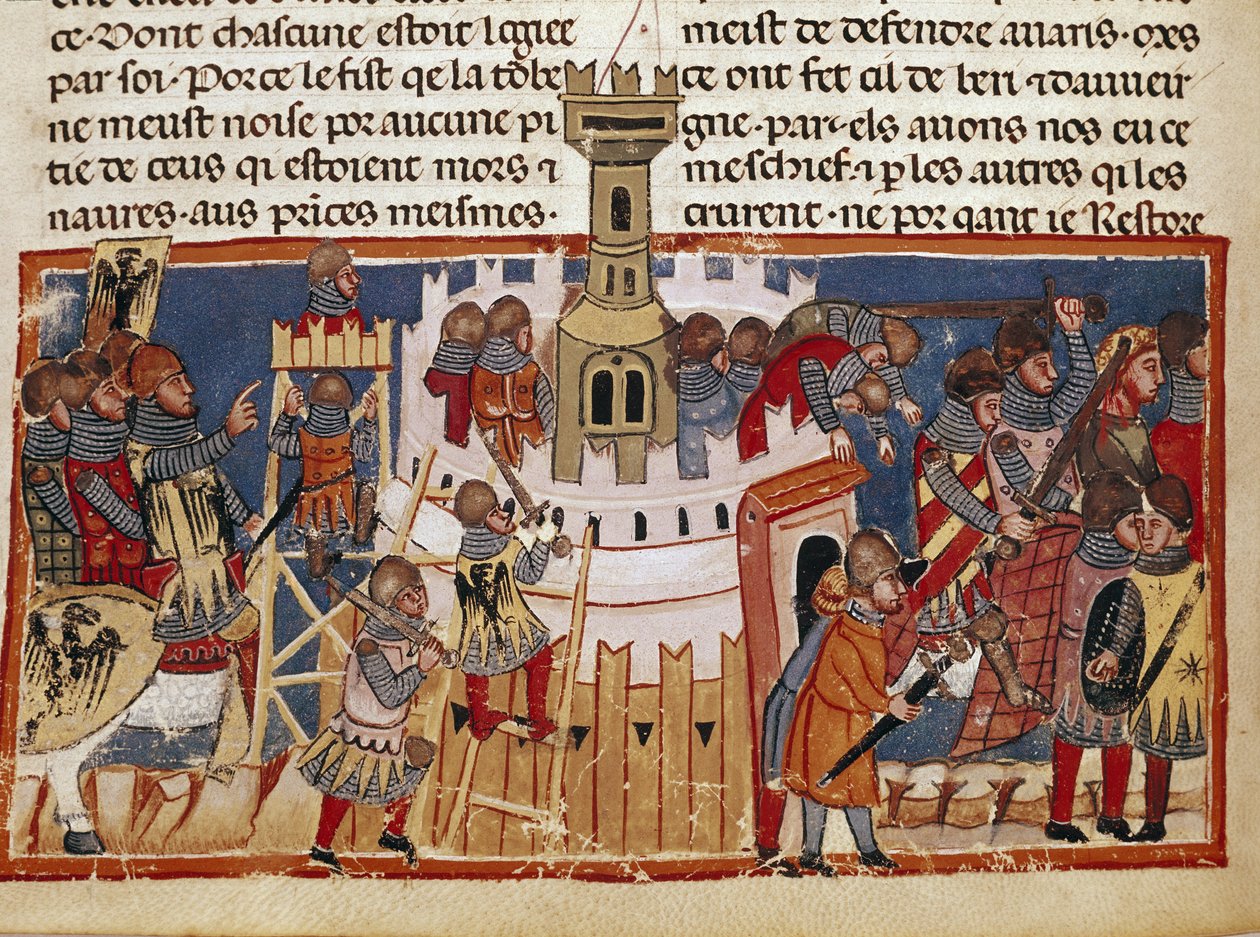 ce·Dont chascune estoit logiee
par soi·Por ce le fist qe la tōbe
ne meust noise por aucune pi
tie de ceus qi estoient mors ⁊
naures·aus pri̅ces meismes·
meust de defendre auaris·ores
ce ont fet cil de beri ⁊ dauuer
gne·par els auons nos eu ce
meschief·⁊ ꝑ les autres qi les
crurent·ne por qant ie Restore